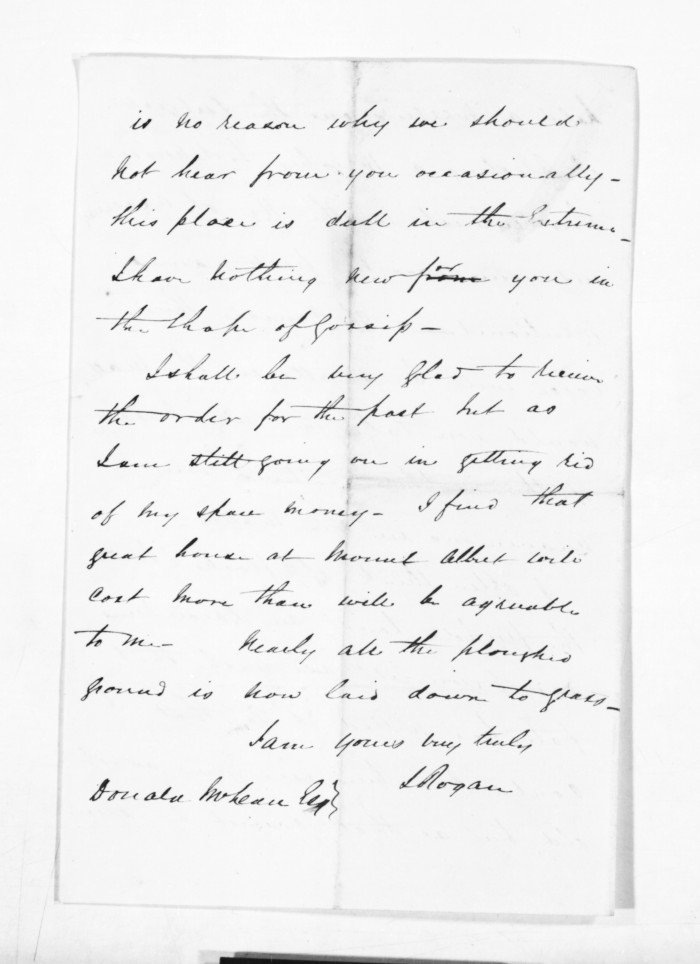 is no reason why we should
not hear from you occasionally -
this place is dull in the Extreme -
I have nothing new for you in
the shape of Gossip -
I shall be very Glad to receive
the order for the past but as
I am still going on in getting rid
of my spare money - I find that
great house at Mount Albert will
cost more than will be agreeable
to me - Nearly all the ploughed
ground is now laid down to grass -
I am yours very truly
Rogan
Donald McLean Esqr